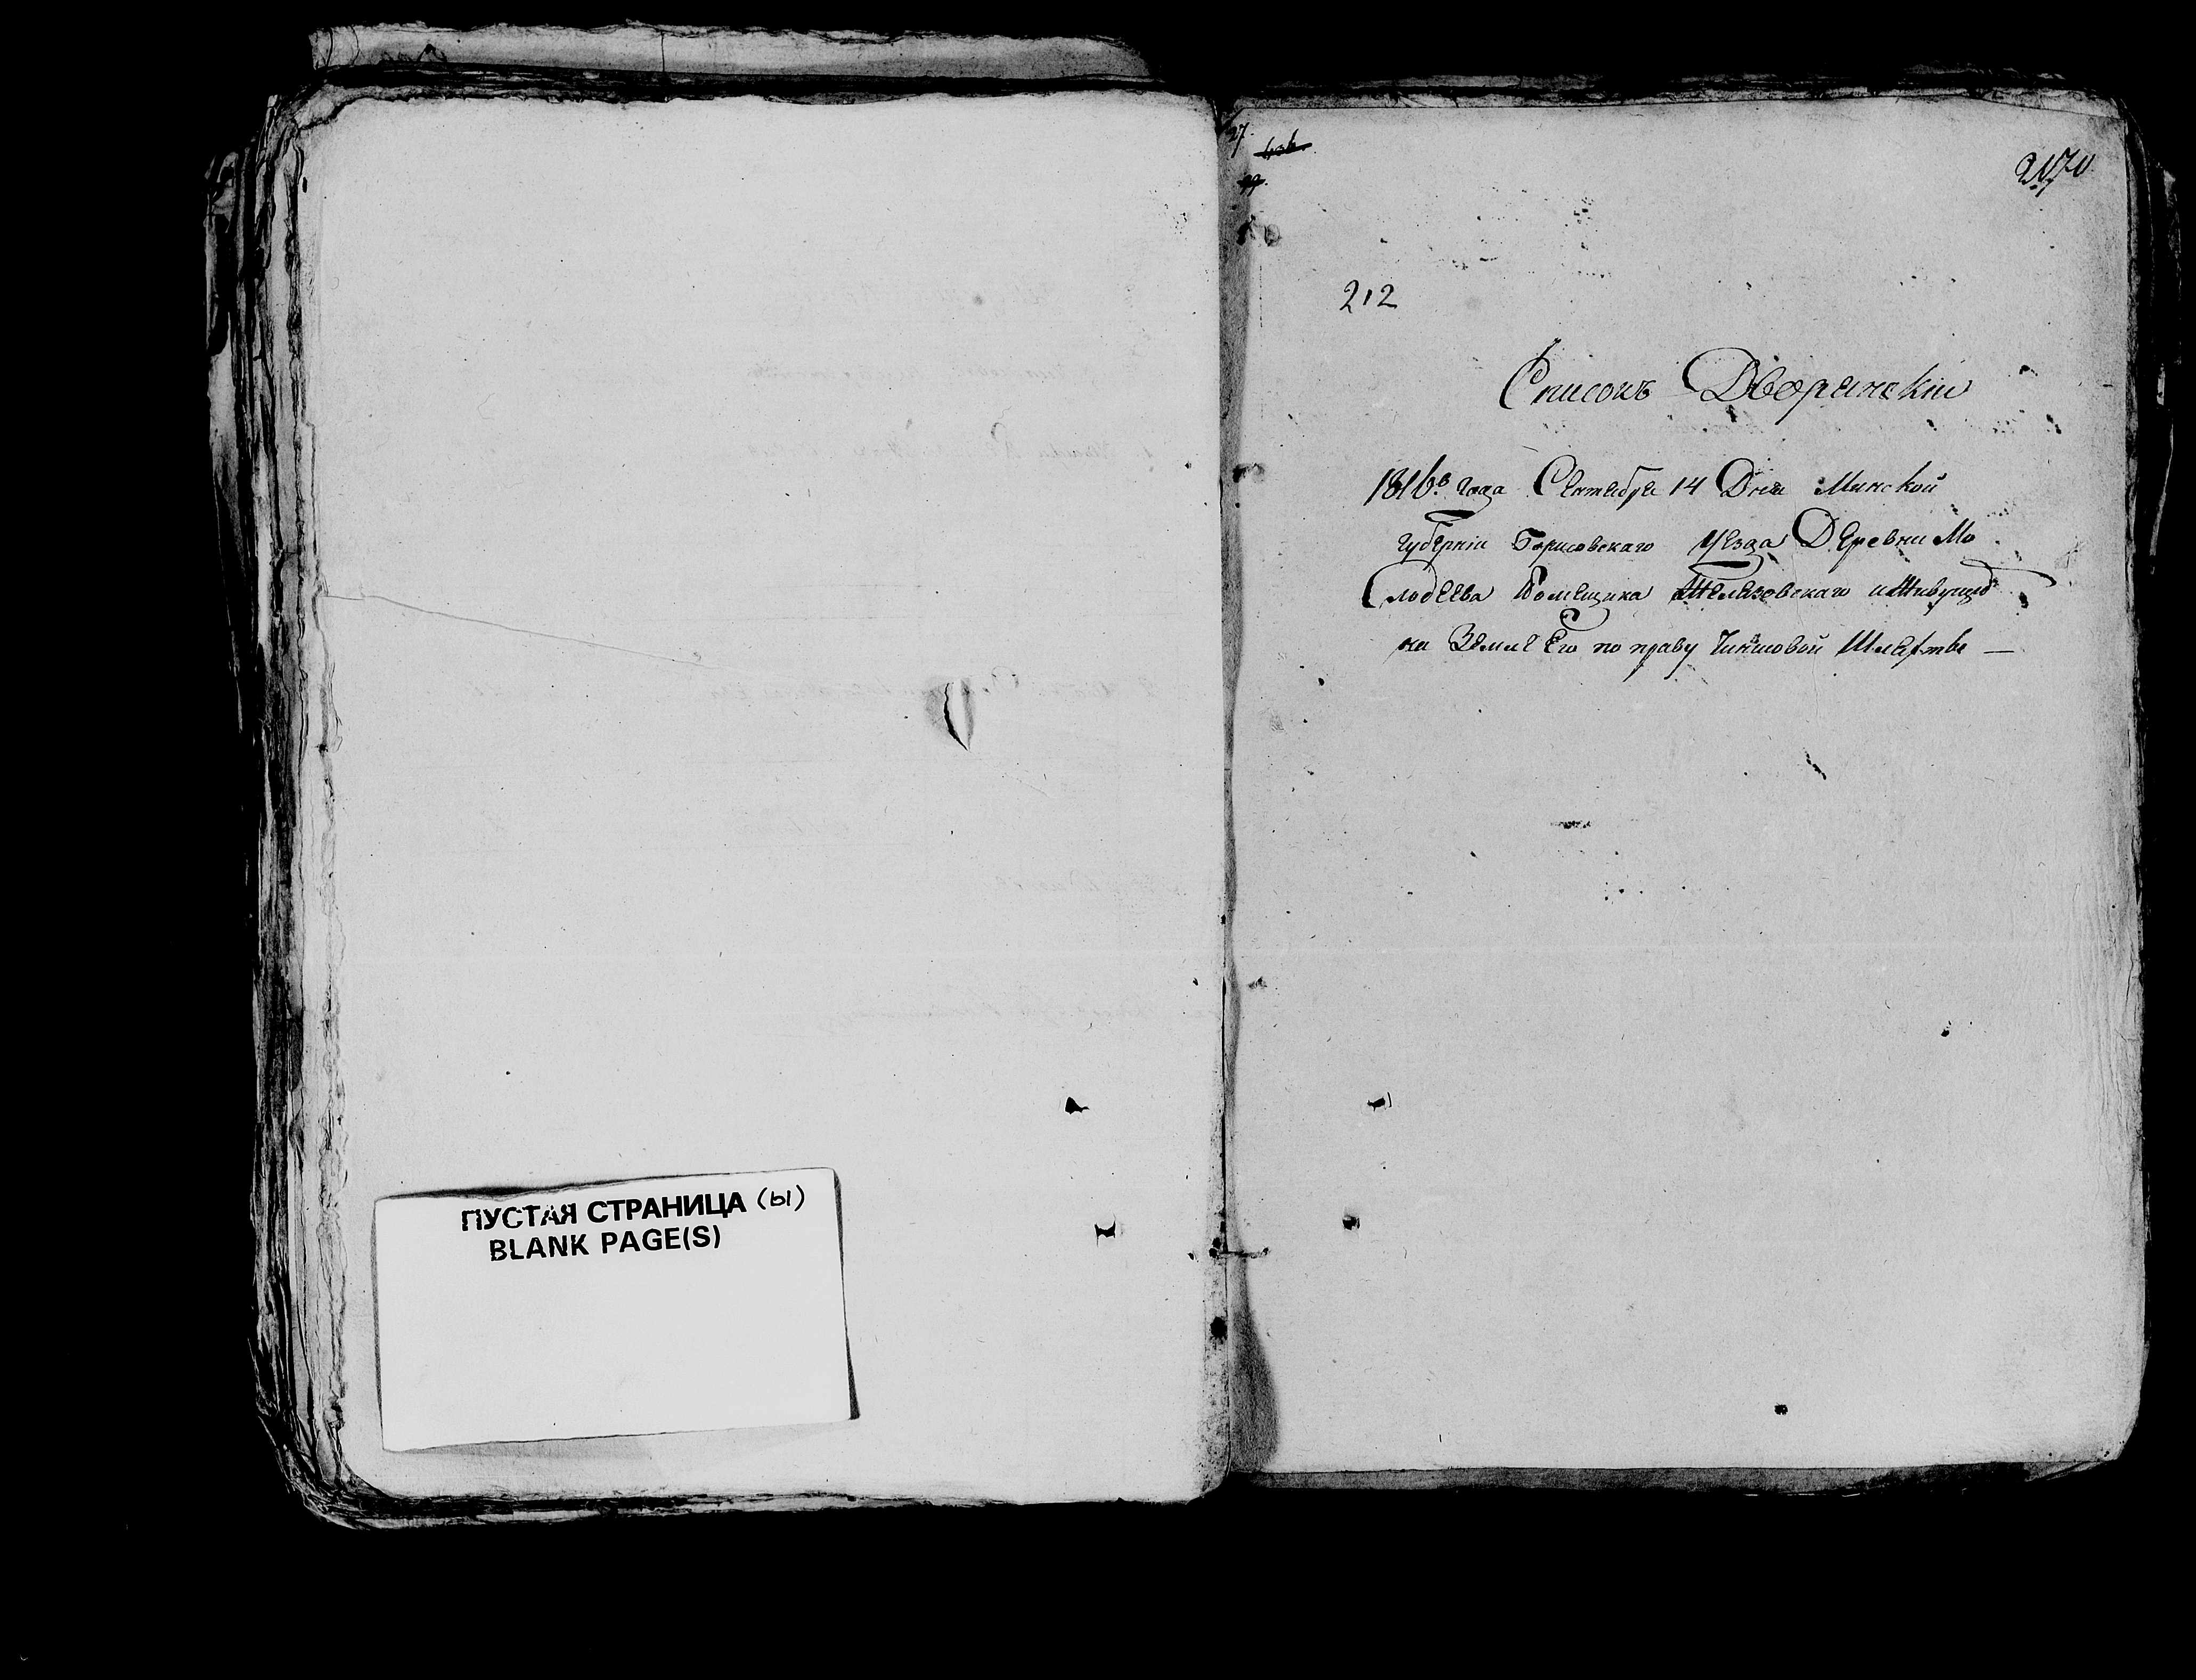 ПУСТАЯ СТРАНИЦА (ы)
BLANK PAGE(S)
212
Списокъ Дворянскiи
1816го года Сентября 14 Дня Минской
губернiи Борисовскаго Уезда Деревни Мо
лодеева Помещика Желязовскаго и Живущей
на Земле Его по праву Чиншовой Шляхтве —